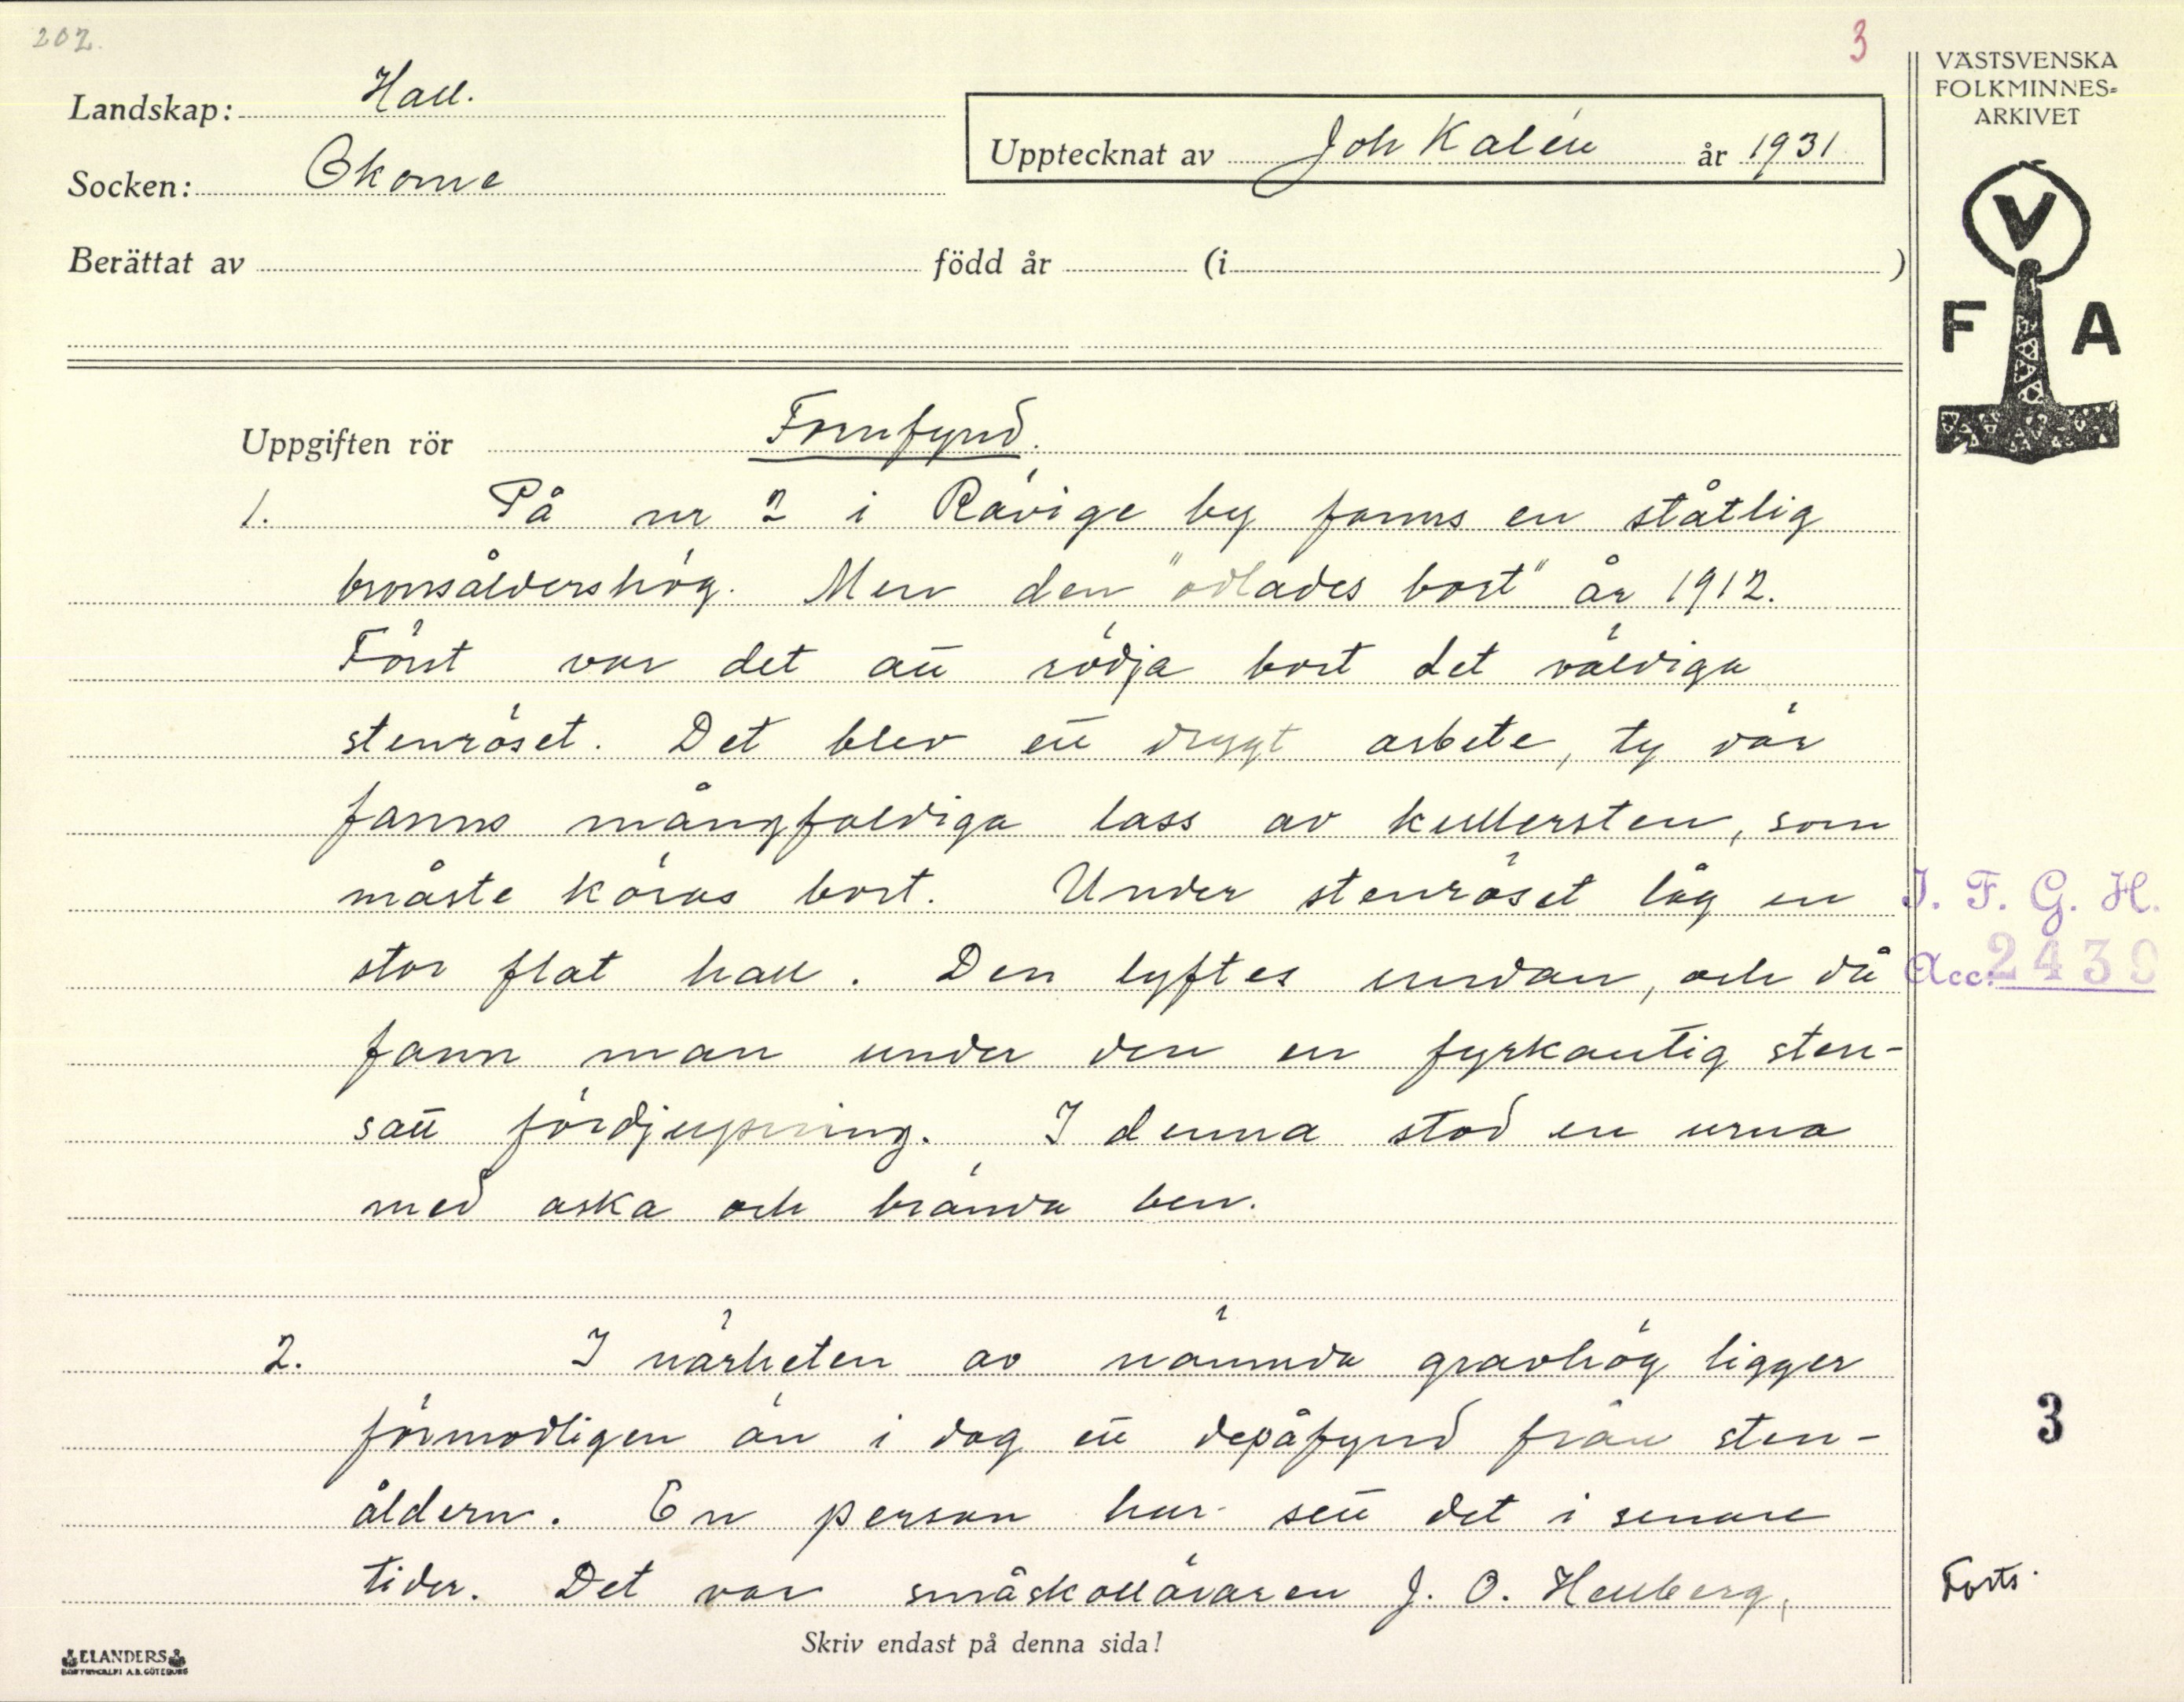 202.
3
Landskap: Hall.
Socken: Okome
Upptecknat av Joh Kalén år 1931
Berättat av född år (i )
VÄSTSVENSKA
FOLKMINNES-
ARKIVET
V
F A
Uppgiften rör Fornfynd.
1. På nr 2 i Rävige by fanns en ståtlig
bronsåldershög. Men den "odlades bort" år 1912.
Först var det att rödja bort det väldiga
stenröset. Det blev ett drygt arbete, ty där
fanns mångfaldiga lass av kullersten, som
måste köras bort. Under stenröset låg en
stor flat hall. Den lyftes undan, och då
fann man under den en fyrkantig sten-
satt fördjupning. I denna stod en urna
med aska och brända ben.
I. F. G. H.
Acc. 2439
2. I närheten av nämnda gravhög ligger
förmodligen än i dag ett depåfynd från sten-
åldern. En person har sett det i senare
tider. Det var småskolläraren J. O. Hellberg,
3
Forts.
Skriv endast på denna sida!
ELANDERS
BOKTRYCKERI A.B. GÖTEBORG